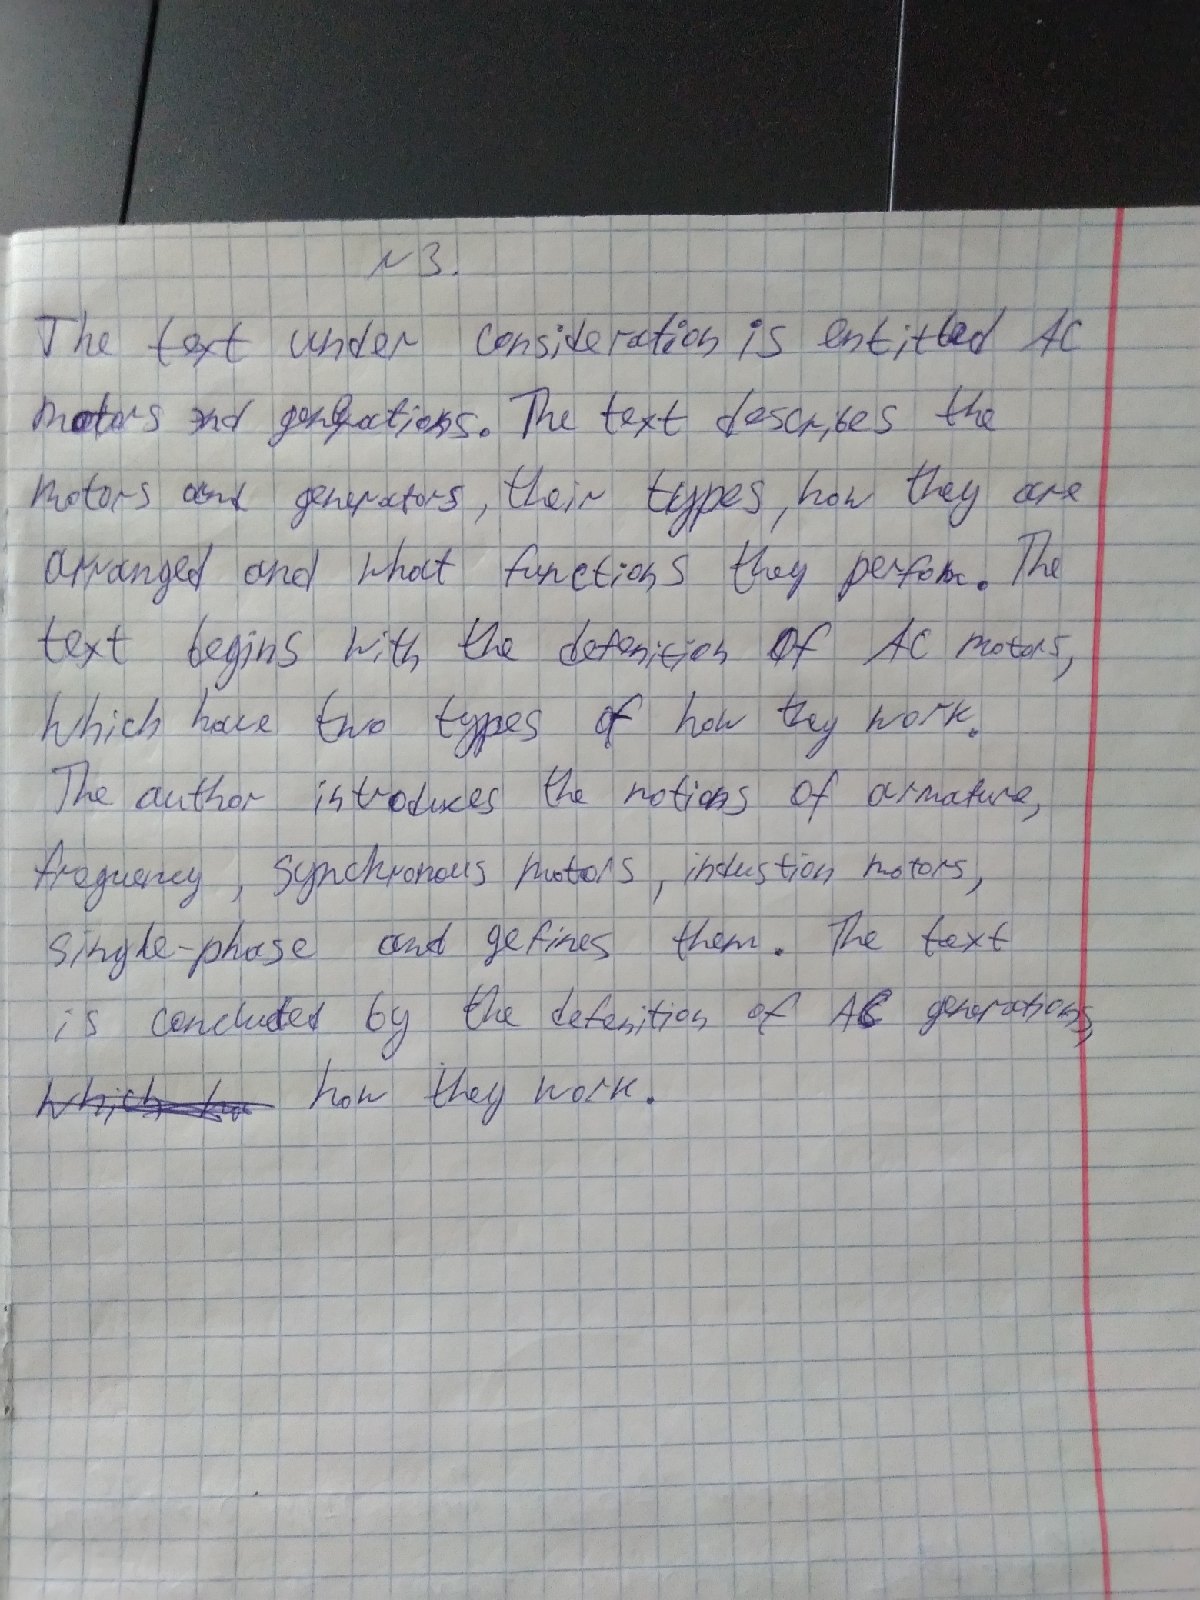 N3.
The text under consideration is entitled AC
motors and generations. The text describes the
motors and generators, their types, how they are
arranged and what functions they perfom. The
text begins with the defenition of AC motors,
which have two types of how they work.
The author introduces the notions of armature,
frequency, synchronous motors, industion motors,
single-phase and gefines them. The text
is concluded by the defenition of AC generations,
how they work.